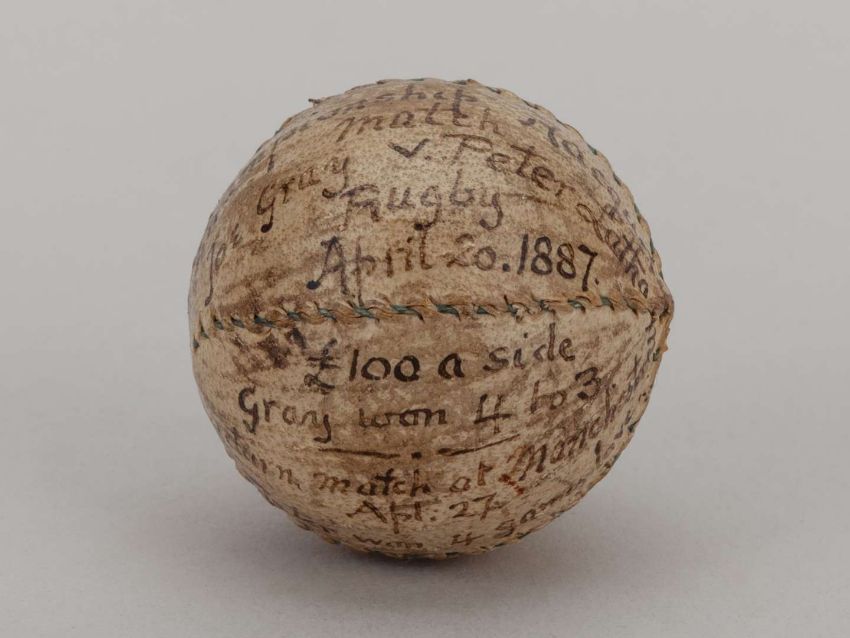 match
Gray v. Peter Latha
Rugby
April 20. 1887.
£100 a side
Gray won 4 to 3.
match at Manchester
Apl. 27
won 4